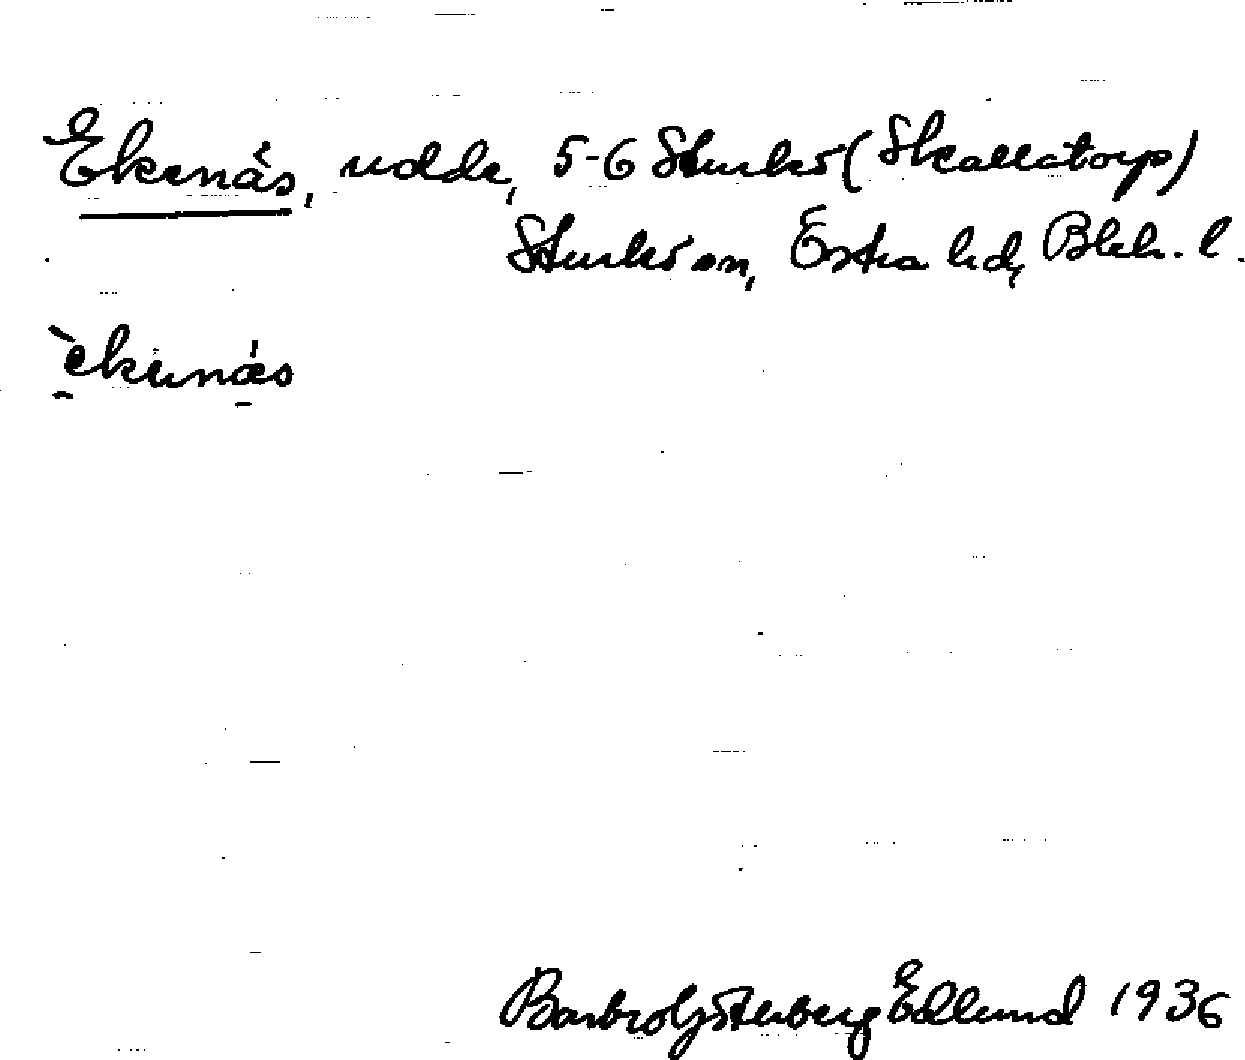 Ekenäs, udde, 5-6 Sturkö (Skallatorp)
Sturkö sn, Östra hd, Blek. l.
èkenä́s
Barbro Göterberg Edlund 1936